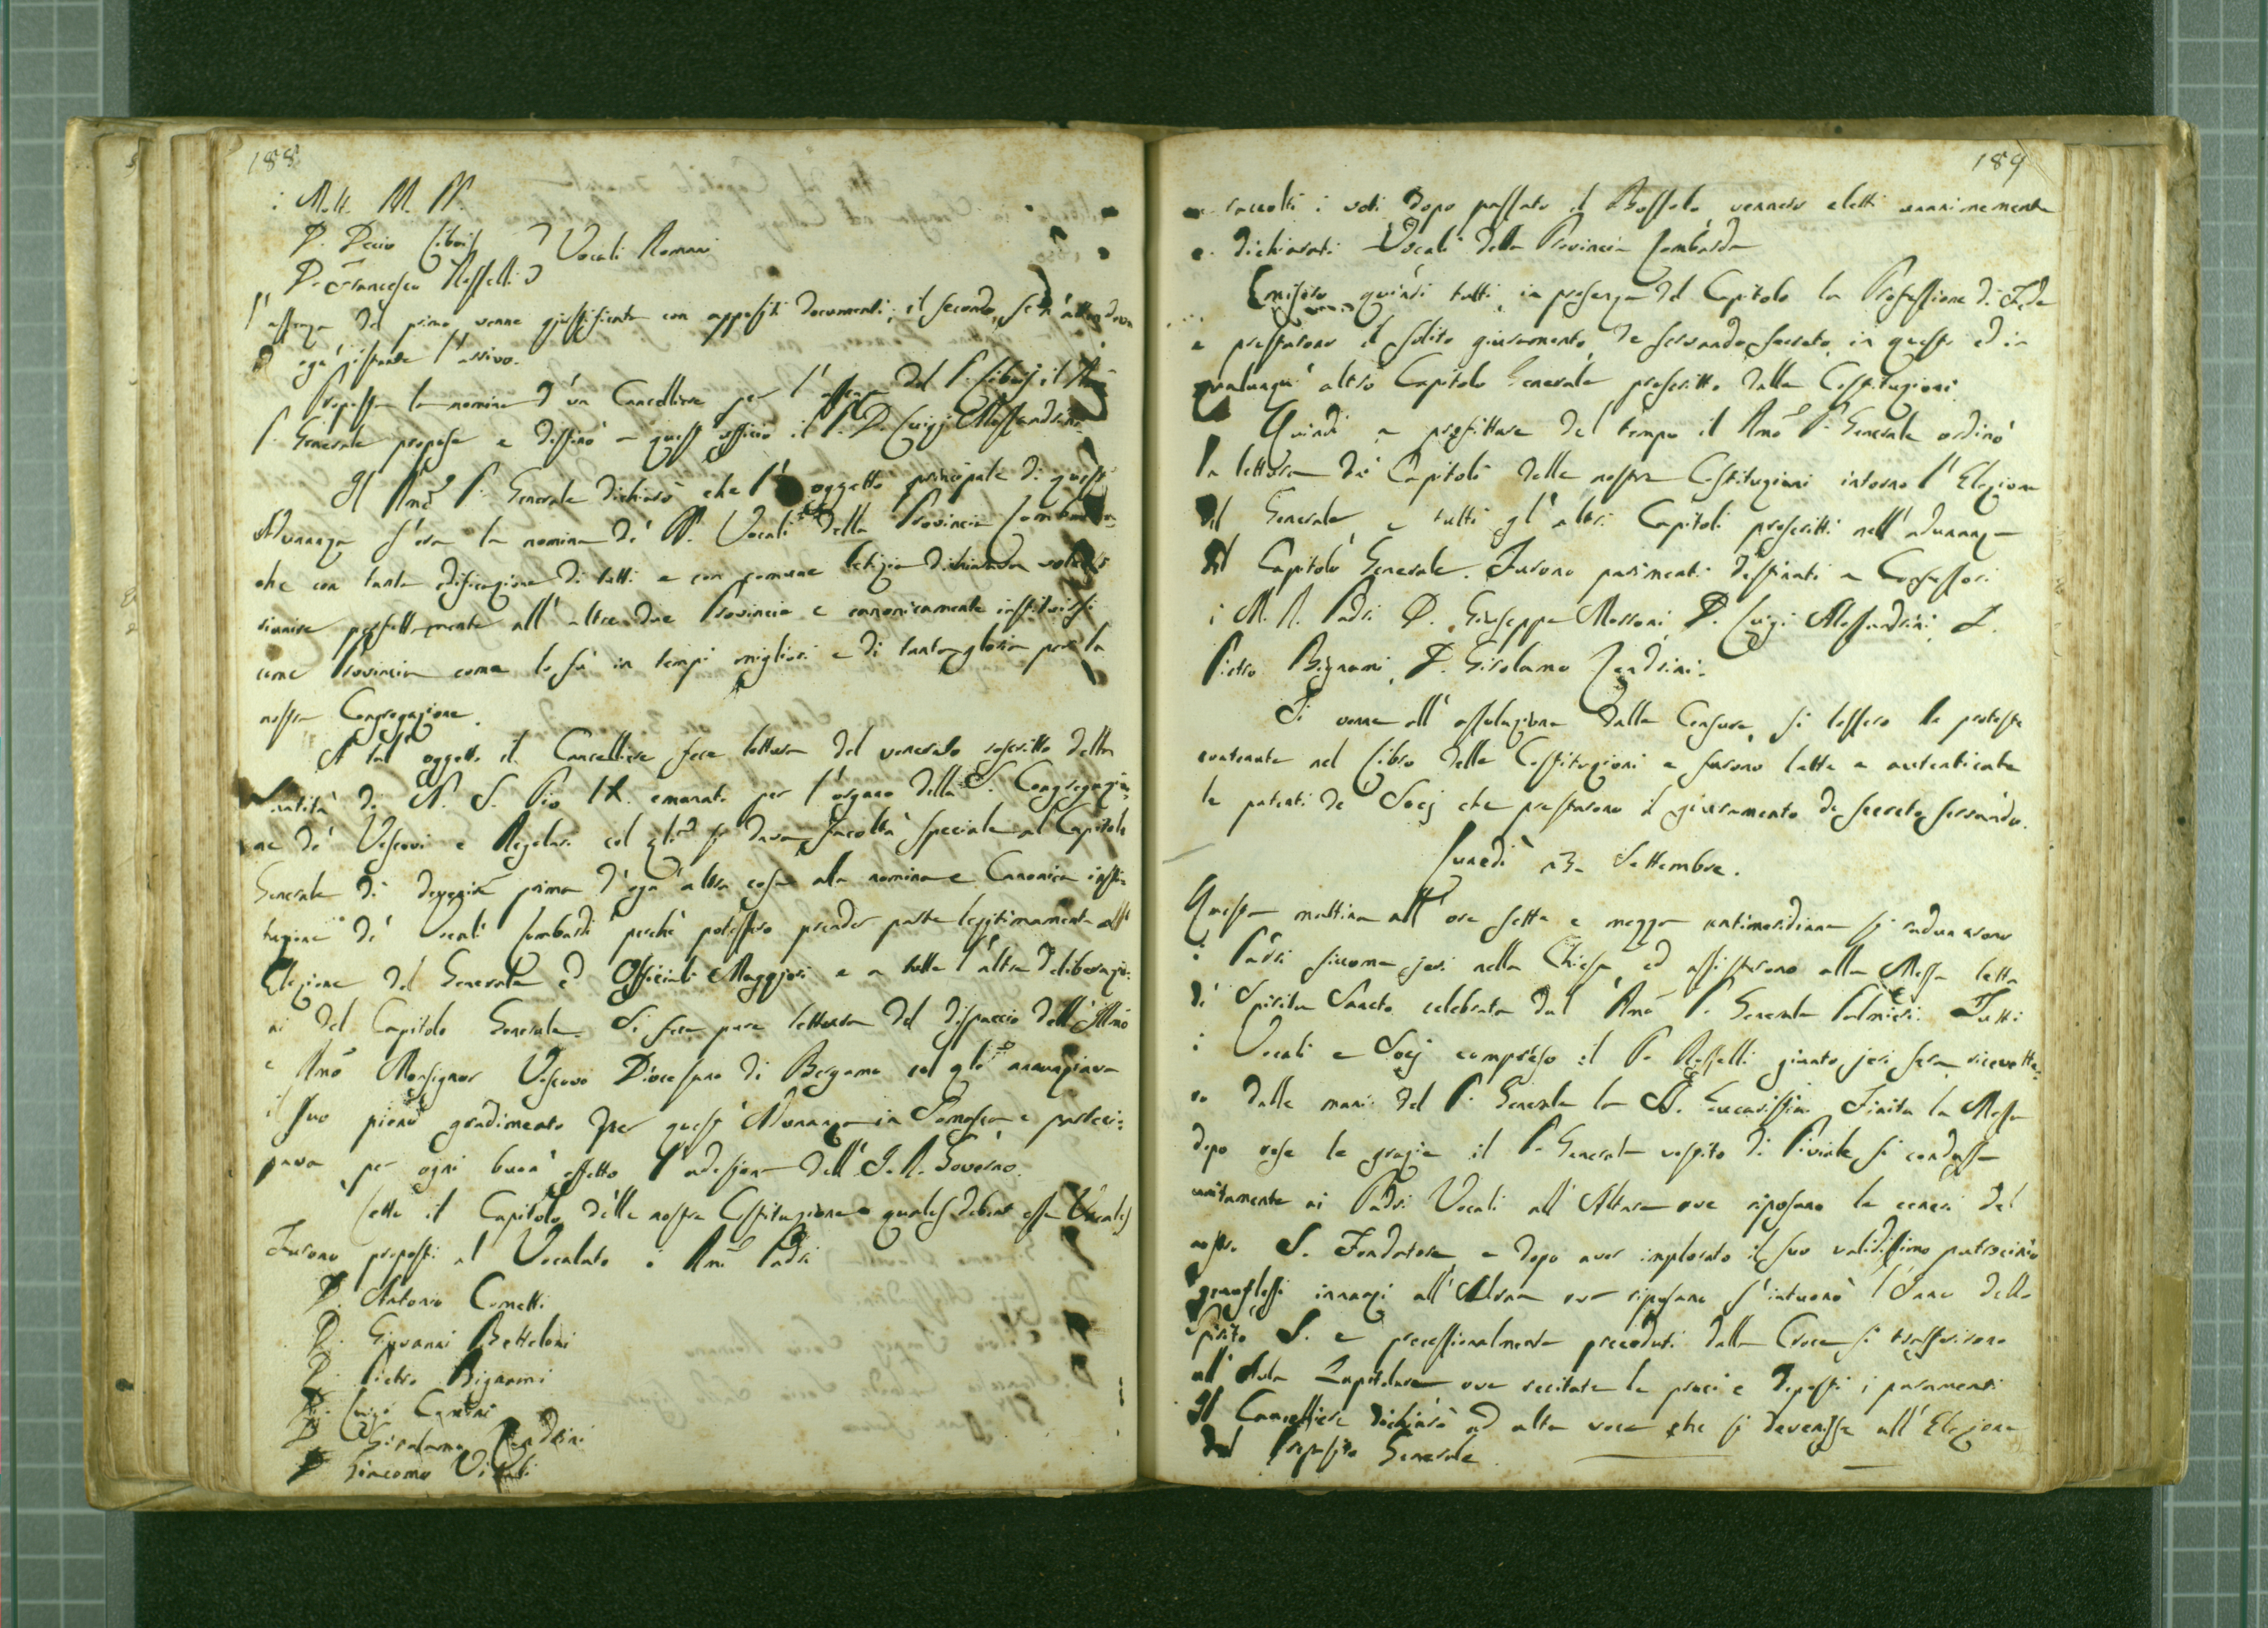 188
i M. M. RR. PP.
D. Decio Libois } Vocali Romani
D. Francesco Rosselli
L'assenza del primo venne giustificata con appositi documenti; il secondo, se n'attendeva
d'ogn' istante l'arrivo.
Proposta la nomina d'un Cancelliere per l'assenza del P. Libois, il Rmo
P. Generale propose e destinò a quest'officio il P. D. Luigi Alessandrini.
Il Rmo P. Generale dichiarò che l' oggetto principale di quest'
Adunanza s'era la nomina de' PP. Vocali della Provincia Lombarda
che con tanta edificazione di tutti e con comune letizia dichiarava volersi
riunire perfettamente all'altre due Provincie e canonicamente instituirsi
come Provincia come lo fu in tempi migliori e di tanta gloria per la
nostra Congregazione.
A tal oggetto il Cancelliere fece lettura del venerato rescritto della
Santità di N. S. Pio IX. emanato per l'organo della S. Congregazio=
ne de' Vescovi e Regolari col qle si dava facoltà speciale al Capitolo
Generale di devenir prima d'ogn'altra cosa alla nomina e Canonica insti=
tuzione de' Vocali Lombardi perchè potessero prender parte legitimamente all'
Elezione del Generale ed Officiali Maggiori e a tutte l'altre deliberazio=
ni del Capitolo Generale. Si fece pure lettura del dispaccio dell'Illmo
e Rmo Monsignor Vescovo Diocesano di Bergamo col qle annunziava
il suo pieno gradimento per quest'Adunanza in Somasca e parteci=
pava per ogni buon effetto l'adesione dell'I. R. Governo.
Letto il Capitolo delle nostre Costituzioni quales debent esse Vocales
Furono proposti al Vocalato i Rmi Padri
D. Antonio Cometti
D. Giovanni Betteloni
D. Pietro Bignami
D. Luigi Cantini
D. Girolamo Zendrini
D. Giacomo Vitali
189
e raccolti i voti dopo passato il Bossolo, vennero eletti unanimemente
e dichiarati Vocali della Provincia Lombarda
Emisero quindi tutti in presenza del Capitolo la Professione di Fede
e prestarono il solito giuramento de servando secreto in questo ed in
qualunqu'altro Capitolo Generale prescritto dalle Costituzioni.
Quindi a profittare del tempo il Rmo P. Generale ordinò
la lettura de' Capitoli delle nostre Costituzioni intorno l'Elezione
del Generale e tutti gl'altri Capitoli prescritti nell'adunanza
del Capitolo Generale. Furono parimenti destinati a Confessori
i M. R. Padri D. Giuseppe Marconi, D. Luigi Alessandrini, D.
Pietro Bignami, D. Girolamo Zendrini.
Si venne all'assoluzione dalle Censure, si lessero le proteste
contenute nel Libro delle Costituzioni e furono lette e autenticate
le patenti de' Socj che prestarono il giuramento de secreto servando.
Lunedì 23. Settembre.
Questa mattina all'ore sette e mezza antimeridiane si radunarono
i Padri siccome jeri nella Chiesa, ed assisterono alla Messa letta
de Spiritu Sancto celebrata dal Rmo P. Generale Palmieri. Tutti
i Vocali e Socj compreso il P. Rosselli giunto jeri sera ricevette=
ro dalle mani del P. Generale la SS. Eucaristia. Finita la Messa
dopo rese le grazie il P. Generale vestito di Piviale si condusse
unitamente ai Padri Vocali all'Altare ove riposano le ceneri del
nostro S. Fondatore e dopo aver implorato il suo validissimo patrocinio
genuflessi innanzi all'Altare ove riposano s'intuonò l'Inno dello
Spirito S. e processionalmente preceduti dalla Croce si trasferirono
all'Aula Capitolare ove recitate le preci e deposti i paramenti
Il Cancelliere dichiarò ad alta voce che si devenisse all'Elezione
del Preposito Generale.